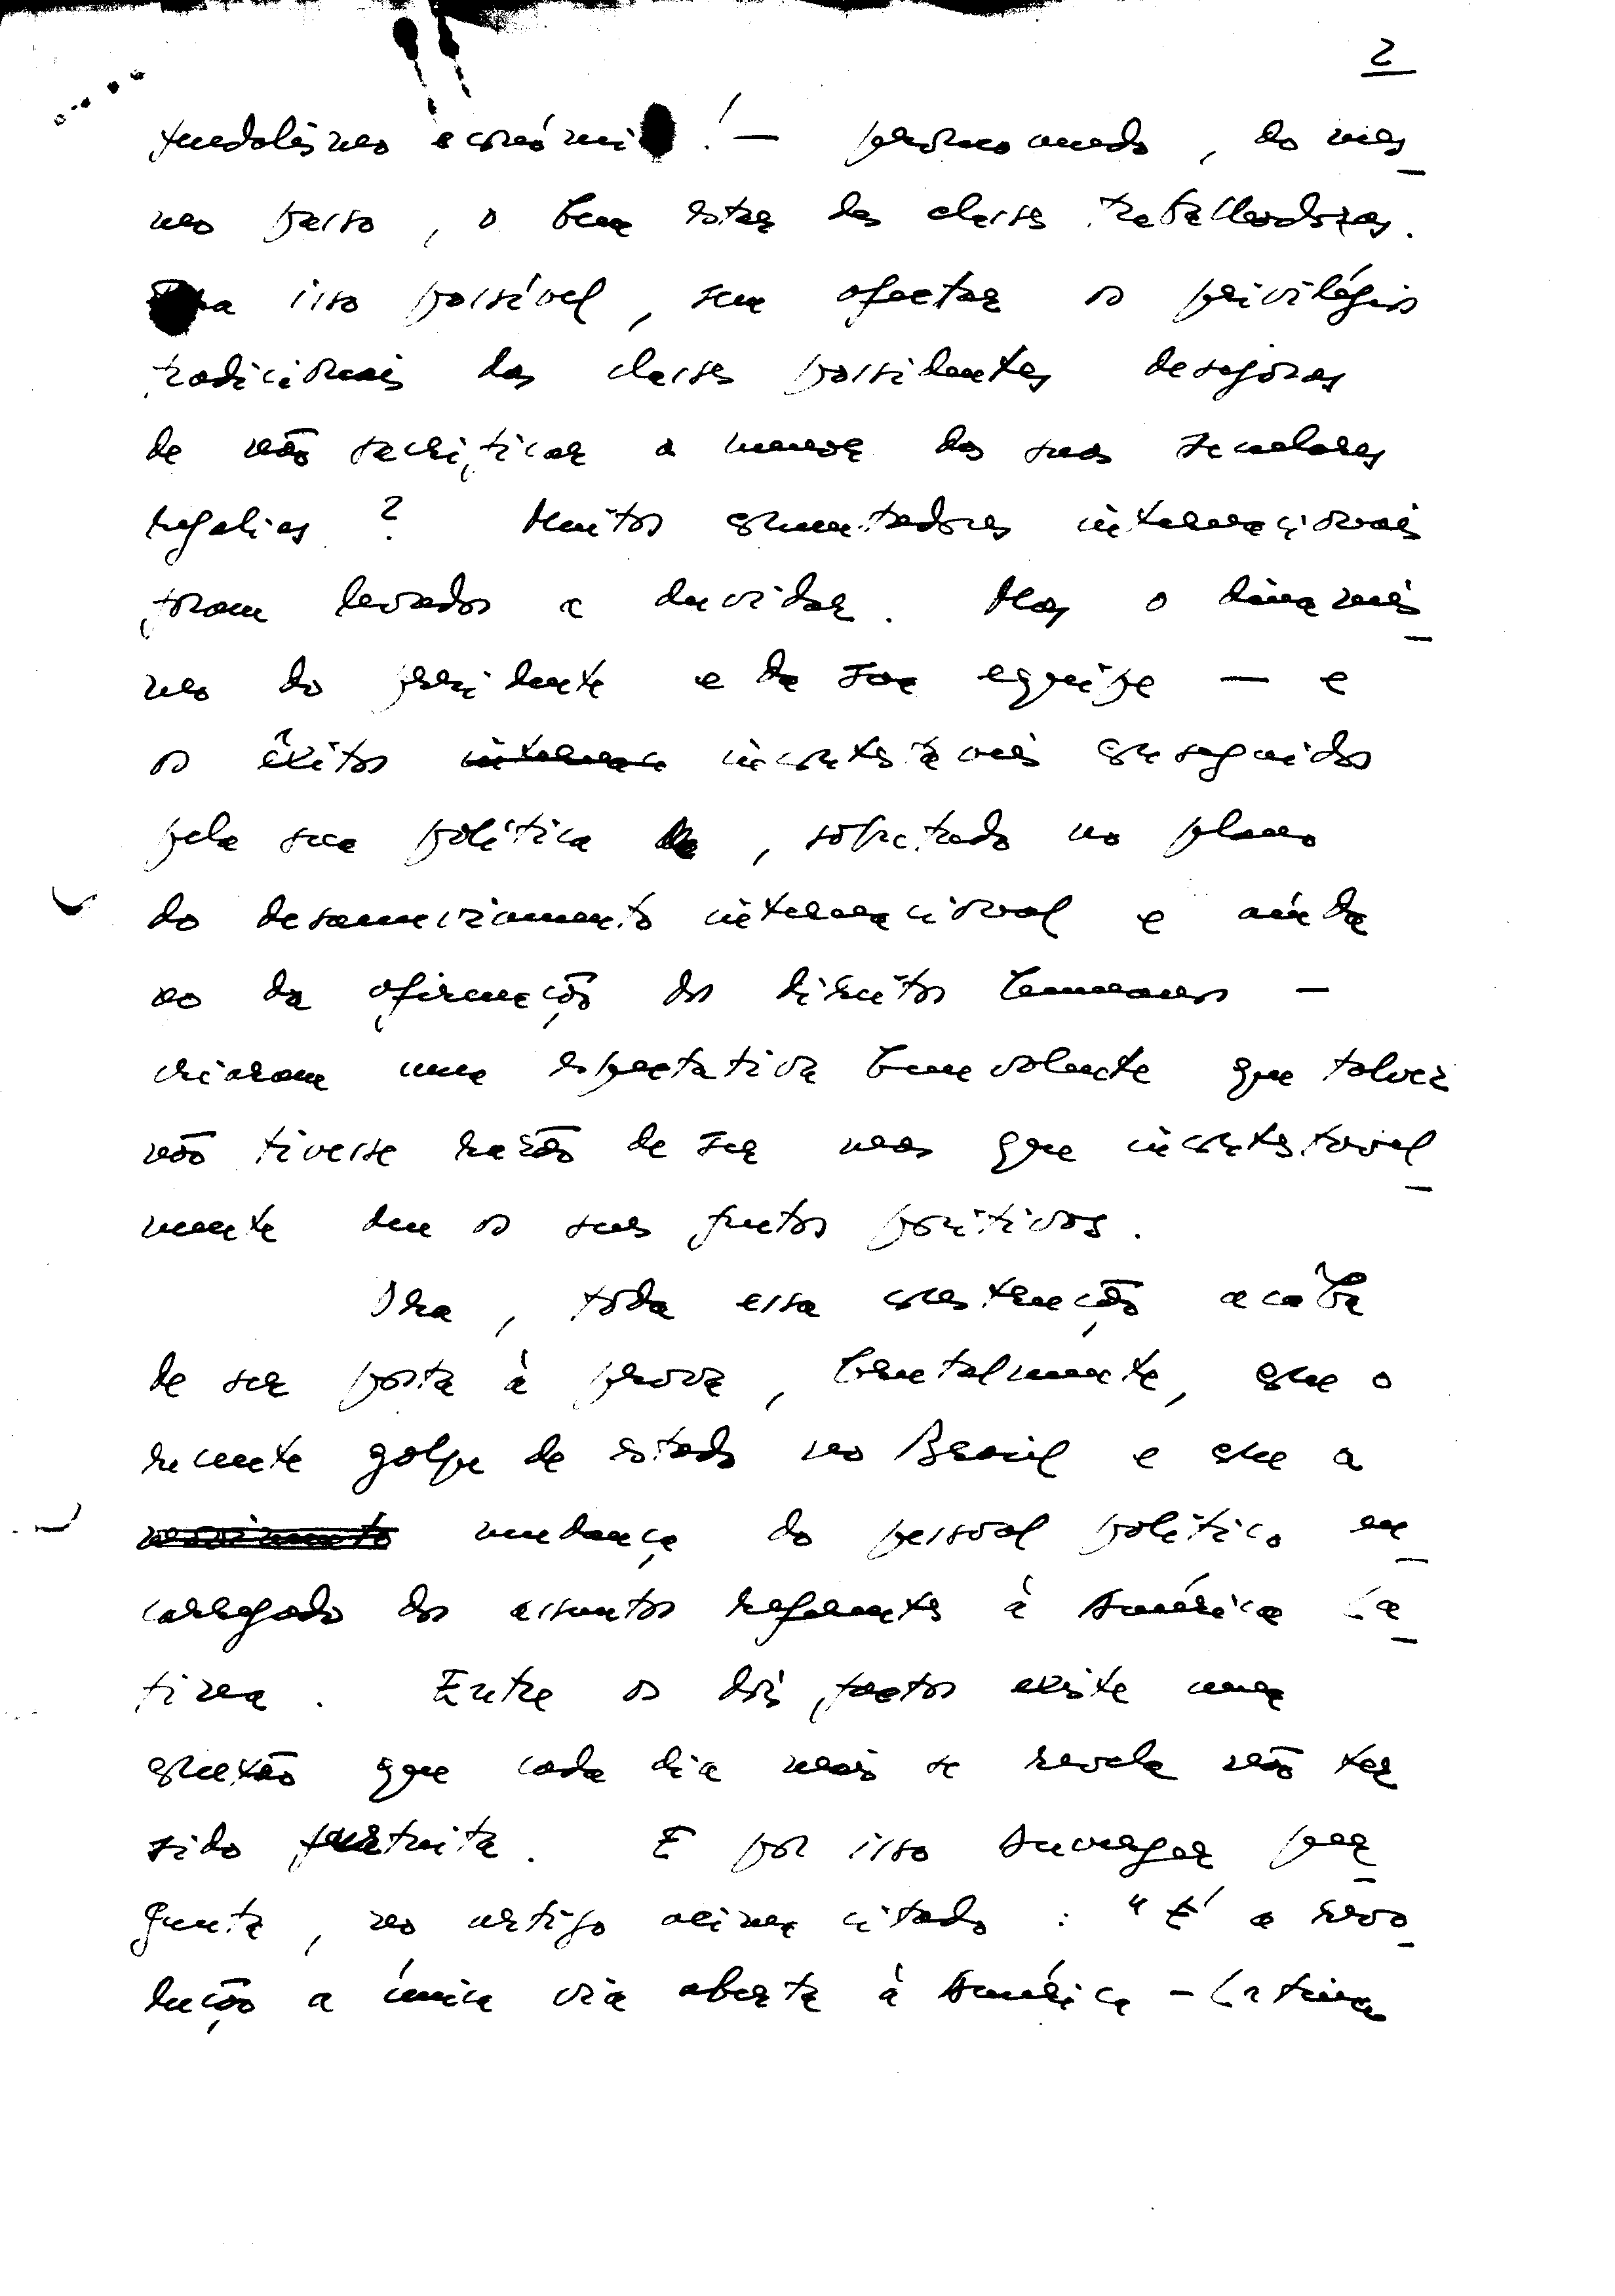 2
feudalismo económi ! — promovendo, do mes-
mo passo, o bem estar das classes trabalhadoras.
Era isso possível, sem afectar os privilégios
tradicionais das classes possidentes desejosas
de não sacrificar a menor das suas seculares
regalias? Muitos comentadores internacionais
foram levados a duvidar. Mas o dinamis-
mo do presidente e da sua equipe — e
os êxitos incontestáveis conseguidos
pela sua política, sobretudo no plano
do desanuviamento internacional e ainda
no da afirmação dos direitos humanos —
criaram uma espectativa benevolente que talvez
não tivesse razão de ser mas que incontestavel-
mente deu os seus frutos positivos.
Ora, toda essa construção acaba
de ser posta à prova, brutalmente, com o
recente golpe de estado no Brasil e com a
mudança do pessoal político en-
carregado dos assuntos referentes à América La-
tina. Entre os dois factos existe uma
conexão que cada dia mais se revela não ter
sido fortuita. E por isso Duverger per-
gunta, no artigo acima citado: "É a revo-
lução a única via aberta à América-Latina